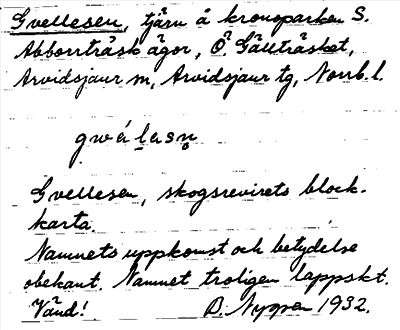 Gvellesen, tjärn å kronoparken S.
Abborrträskågor, Ö. Gällträsket,
Arvidsjaur sn, Arvidsjaur tg, Norrb. l.
gwálasn̥
Gvellesen, skogsrevirets block-
karta.
Namnets uppkomst och betydelse
obekant. Namnet troligen lappskt.
Vänd! O. Nyppen 1932.